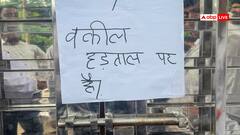 abp LIVE
वकील
हड़ताल पर
है।